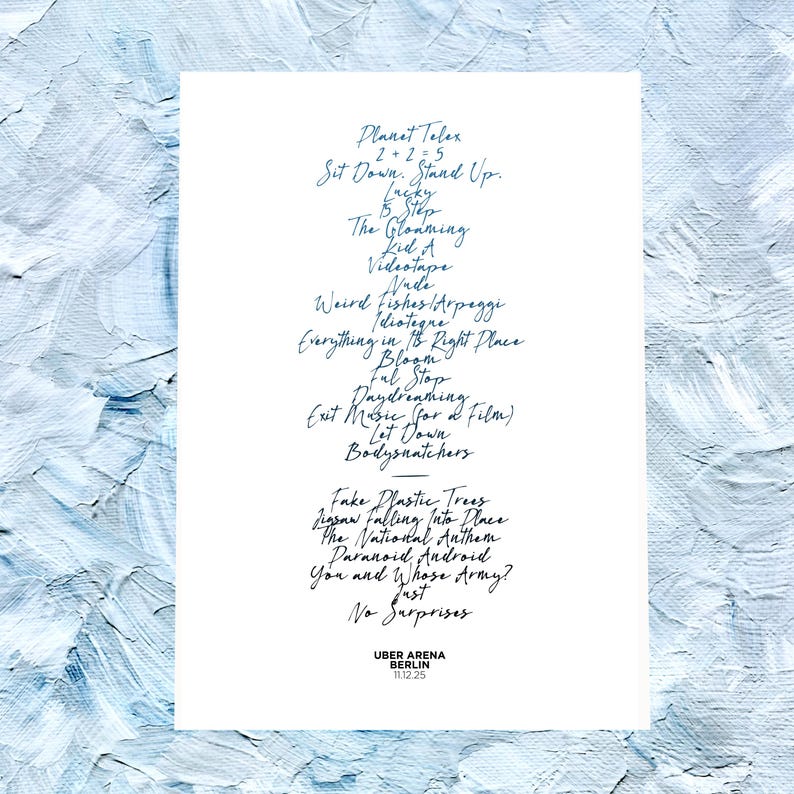 Planet Telex
2 + 2 = 5
Sit Down. Stand Up.
Lucky
15 Step
The Gloaming
Kid A
Videotape
Nude
Weird Fishes/Arpeggi
Idioteque
Everything in Its Right Place
Bloom
Ful Stop
Daydreaming
Exit Music (for a Film)
Let Down
Bodysnatchers
Fake Plastic Trees
Jigsaw Falling Into Place
The National Anthem
Paranoid Android
You and Whose Army?
Just
No Surprises
UBER ARENA
BERLIN
11.12.25